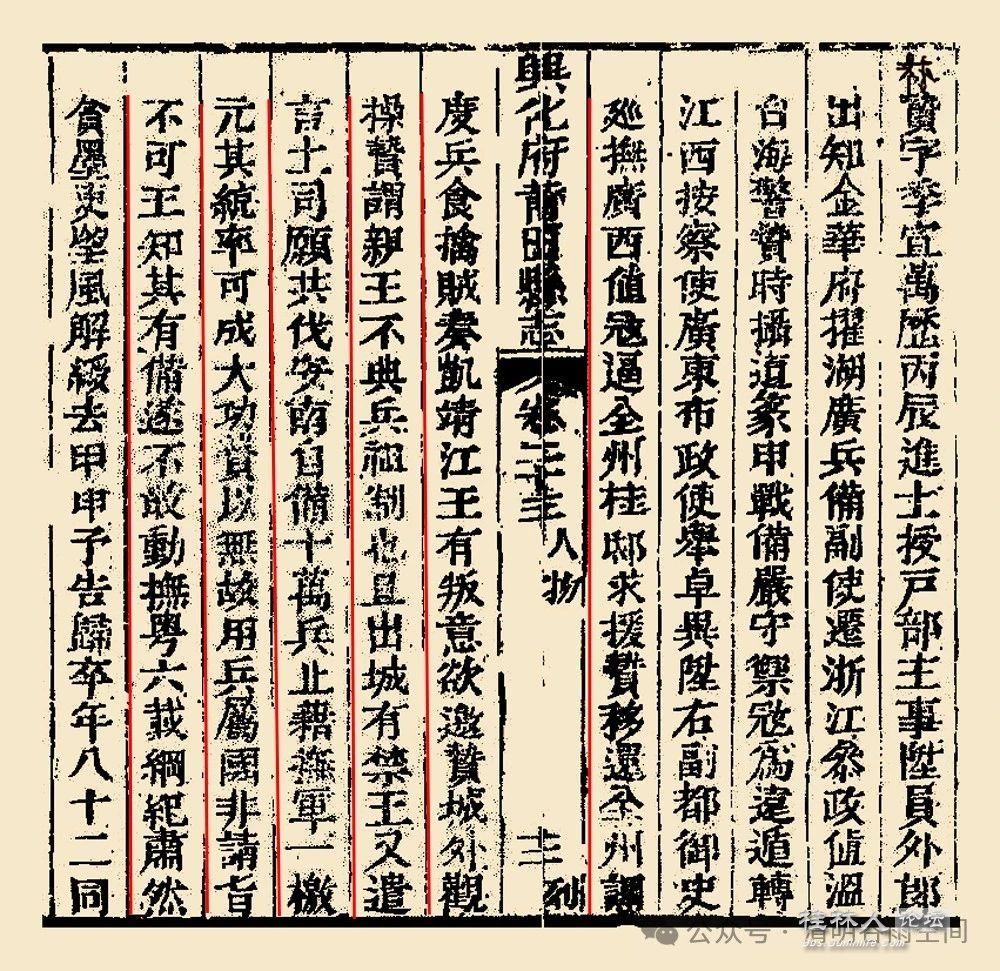 林贄字季宜萬歷丙辰進士授戶部主事陞員外郎
出知金華府擢湖廣兵備副使遷浙江叅政值溫
台海警贄時攝道篆申戰備嚴守禦寇為遠遁轉
江西按察使廣東布政使舉卓異陞右副都御史
廵撫廣西值寇逼全州桂邸求援贄移還全州調
興化府莆田縣志 卷二十三 人物
度兵食擒賊奏凱靖江王有叛意欲邀贄城外觀
操贄謂親王不典兵祖制也且出城有禁王又遣
言土司願共伐安南自備十萬兵止藉撫軍一檄
元其統率可成大功贄以無故用兵屬國非請旨
不可王知其有備遂不敢動撫粵六載綱紀肅然
貪墨吏望風解綬去甲申予告歸卒年八十二同
桂林人论坛
公众号·清明谷雨空间